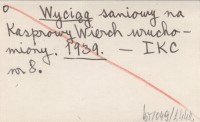 Wyciąg saniowy na
Kasprowy Wierch urucho-
miony. 1939. — IKC
nr 8.